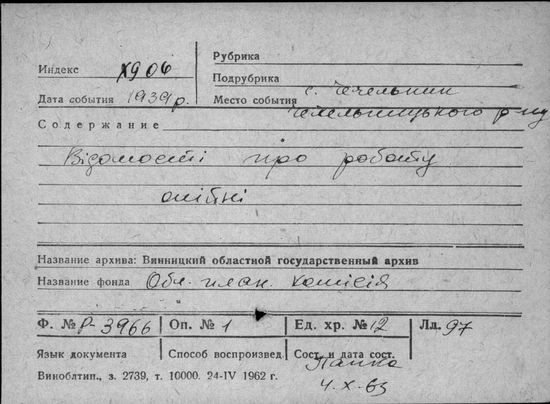 Индекс Х906
Рубрика
Подрубрика
Дата события 1939 р.
Место события с. Чечельник
Чечельницького р-ну
Содержание
Відомості про роботу
олійні
Название архива: Винницкий областной государственный архив
Название фонда Обл. план. комісія
Ф. № Р-3966 Оп. № 1 Ед. хр. № 12 Лл. 97
Язык документа Способ воспроизвед. Сост. и дата сост.
4.X.63
Виноблтип., з. 2739, т. 10000. 24-IV 1962 г.